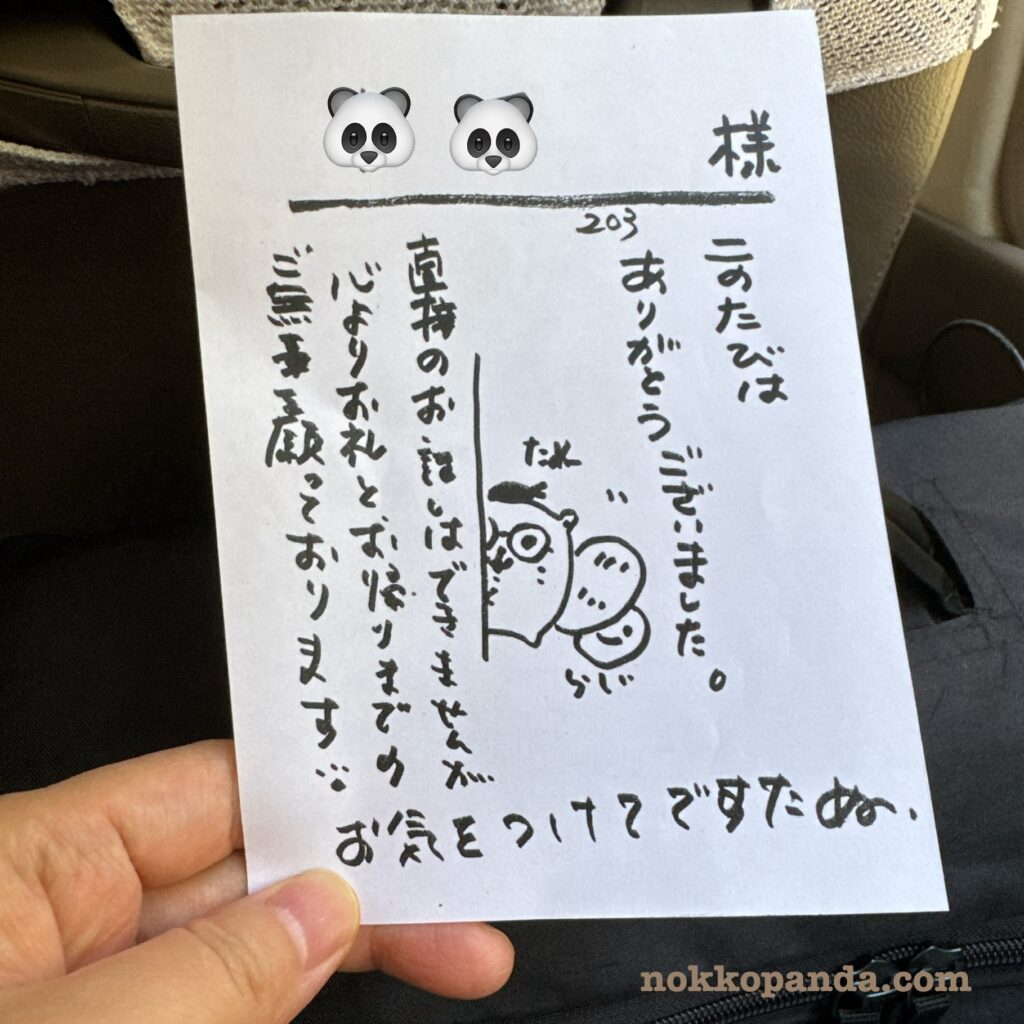 様
203
このたびは
ありがとうございました。
たぬ
らじ
直接のお話しはできませんが
心よりお礼と、お帰りまでの
ご無事を願っております
お気をつけてですたぬ.
nokkopanda.com